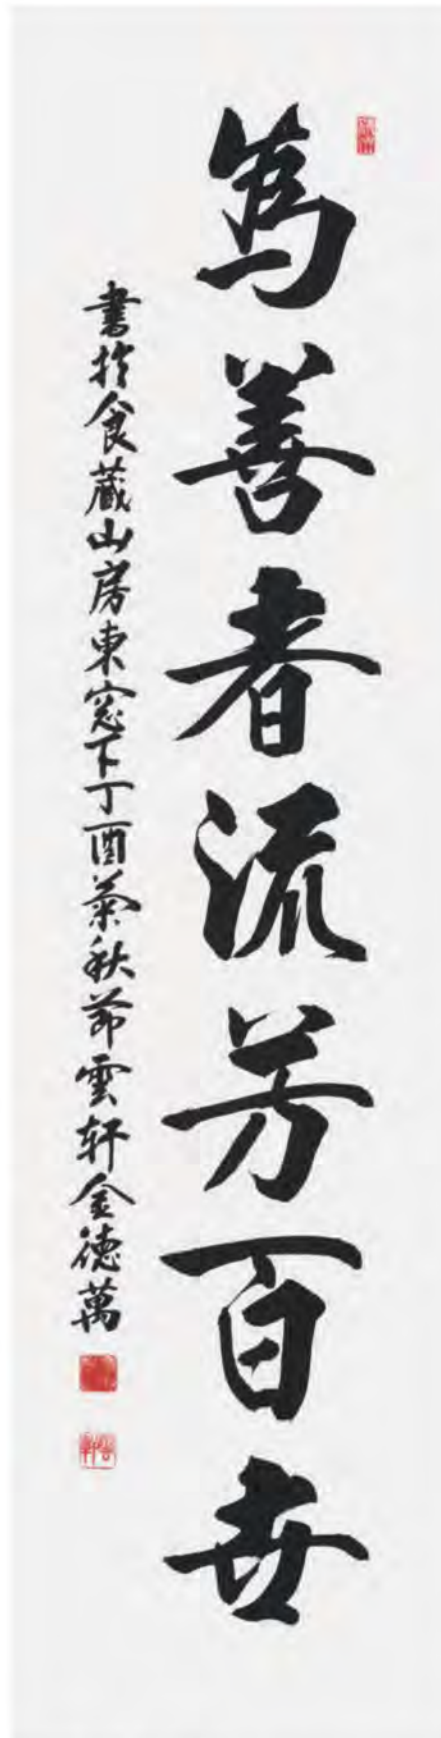 篤善者流芳百世
書於食藏山房東窓下丁酉菊秋節雲軒金德萬